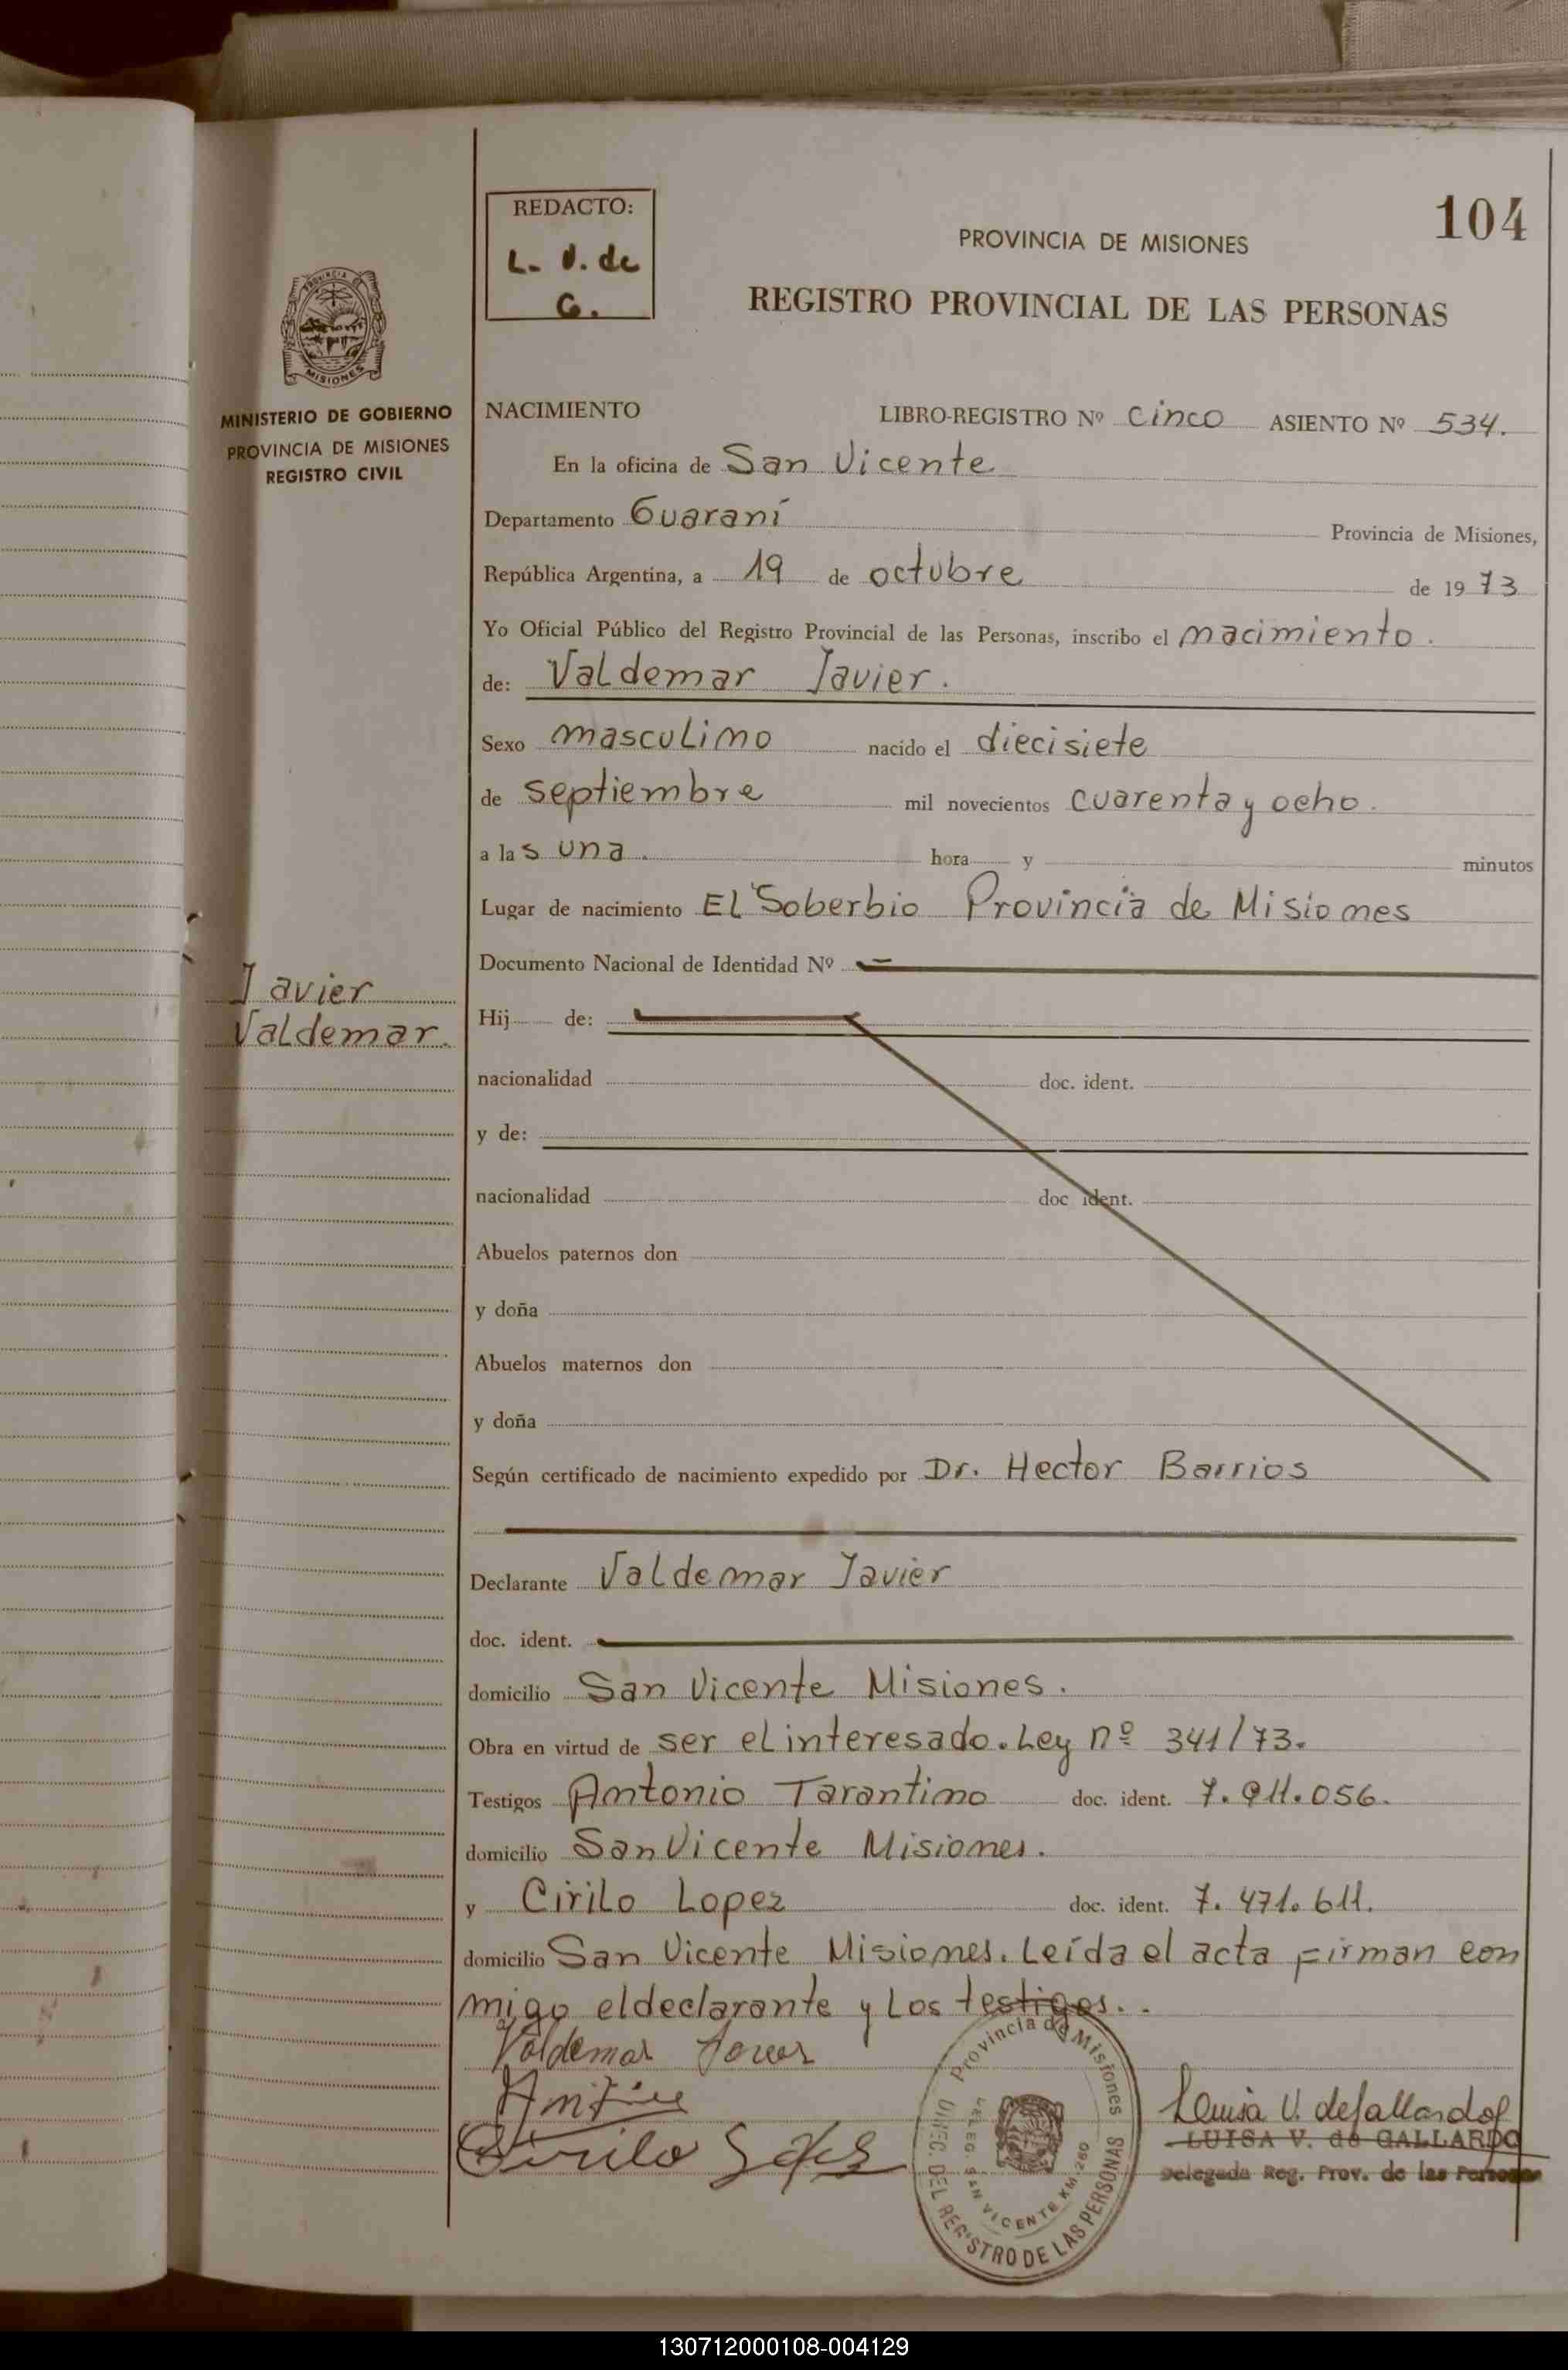 REDACTO:
L. V. de
G.
104
PROVINCIA DE MISIONES
REGISTRO PROVINCIAL DE LAS PERSONAS
PROVINCIA DE
MISIONES
MINISTERIO DE GOBIERNO
PROVINCIA DE MISIONES
REGISTRO CIVIL
NACIMIENTO LIBRO-REGISTRO Nº cinco ASIENTO Nº 534.
En la oficina de San Vicente
Departamento Guaraní Provincia de Misiones,
República Argentina, a 19 de octubre de 1973
Yo Oficial Público del Registro Provincial de las Personas, inscribo el nacimiento.
de: Valdemar Javier.
Sexo masculino nacido el diecisiete
de septiembre mil novecientos cuarenta y ocho.
a las una. hora y minutos
Lugar de nacimiento El Soberbio Provincia de Misiones
Documento Nacional de Identidad Nº
Javier
Valdemar.
Hij de:
nacionalidad doc. ident.
y de:
nacionalidad doc ident.
Abuelos paternos don
y doña
Abuelos maternos don
y doña
Según certificado de nacimiento expedido por Dr. Hector Barrios
Declarante Valdemar Javier
doc. ident.
domicilio San Vicente Misiones.
Obra en virtud de ser el interesado. Ley nº 341/73.
Testigos Antonio Tarantino doc. ident. 7.911.056.
domicilio San Vicente Misiones.
y Cirilo Lopez doc. ident. 7.471.611.
domicilio San Vicente Misiones. Leída el acta firman con
migo el declarante y los testigos..
Valdemar
Cirilo
Provincia de Misiones
DIREC. DEL REGISTRO DE LAS PERSONAS
DELEG. SAN VICENTE KM. 260
Luisa V. de Gallardo
LUISA V. de GALLARDO
Delegada Reg. Prov. de las Personas
130712000108-004129